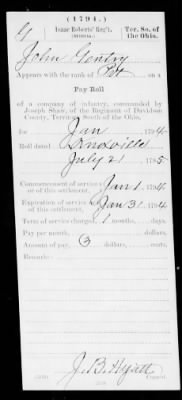 (1794.)
G Isaac Roberts' Reg't. Ter. So. of
(Militia.) the Ohio.
John Gentry
Appears with the rank of Pvt on a
Pay Roll
of a company of infantry, commanded by
Joseph Shaw, of the Regiment of Davidson
County, Territory South of the Ohio,
for Jan 1794.
Roll dated Knoxville
July 21 1795
Commencement of service
or of this settlement, Jan 1, 1794
Expiration of service
of this settlement, Jan 31, 1794
Term of service charged, 1 months, days
Pay per month, dollars, cents.
Amount of pay, 3 dollars, cents.
Remarks:
J. B. Hyatt
Copyist.